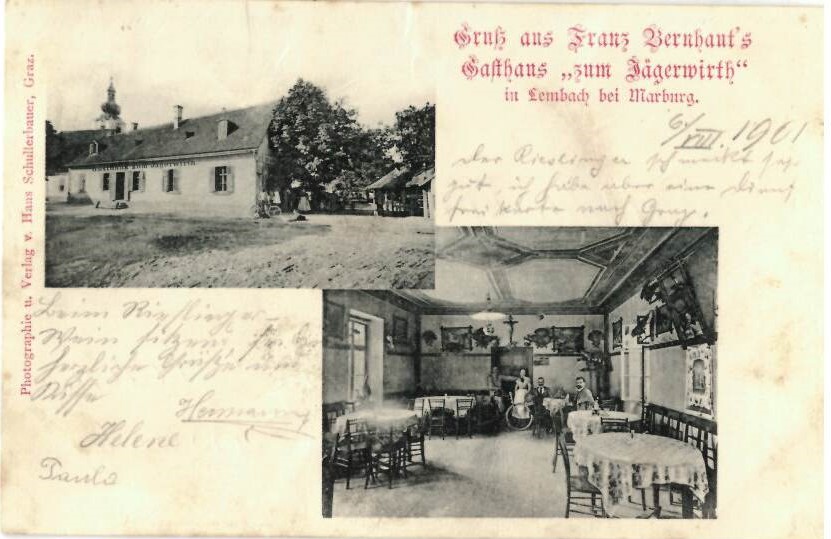 Gruß aus Franz Bernhaut's
Gasthaus „zum Jägerwirth“
in Lembach bei Marburg.
6/VIII. 1901
Der Rieslinger schmeckt sehr
gut, ich habe aber eine
freikarte nach Graz.
Photographie u. Verlag v. Hans Schullerbauer, Graz.
Gasthaus zum Jägerwirth
Beim Rieslinger-
Wein sitzen
herzliche Grüße und
Küsse
Hermann
Helene
Paula